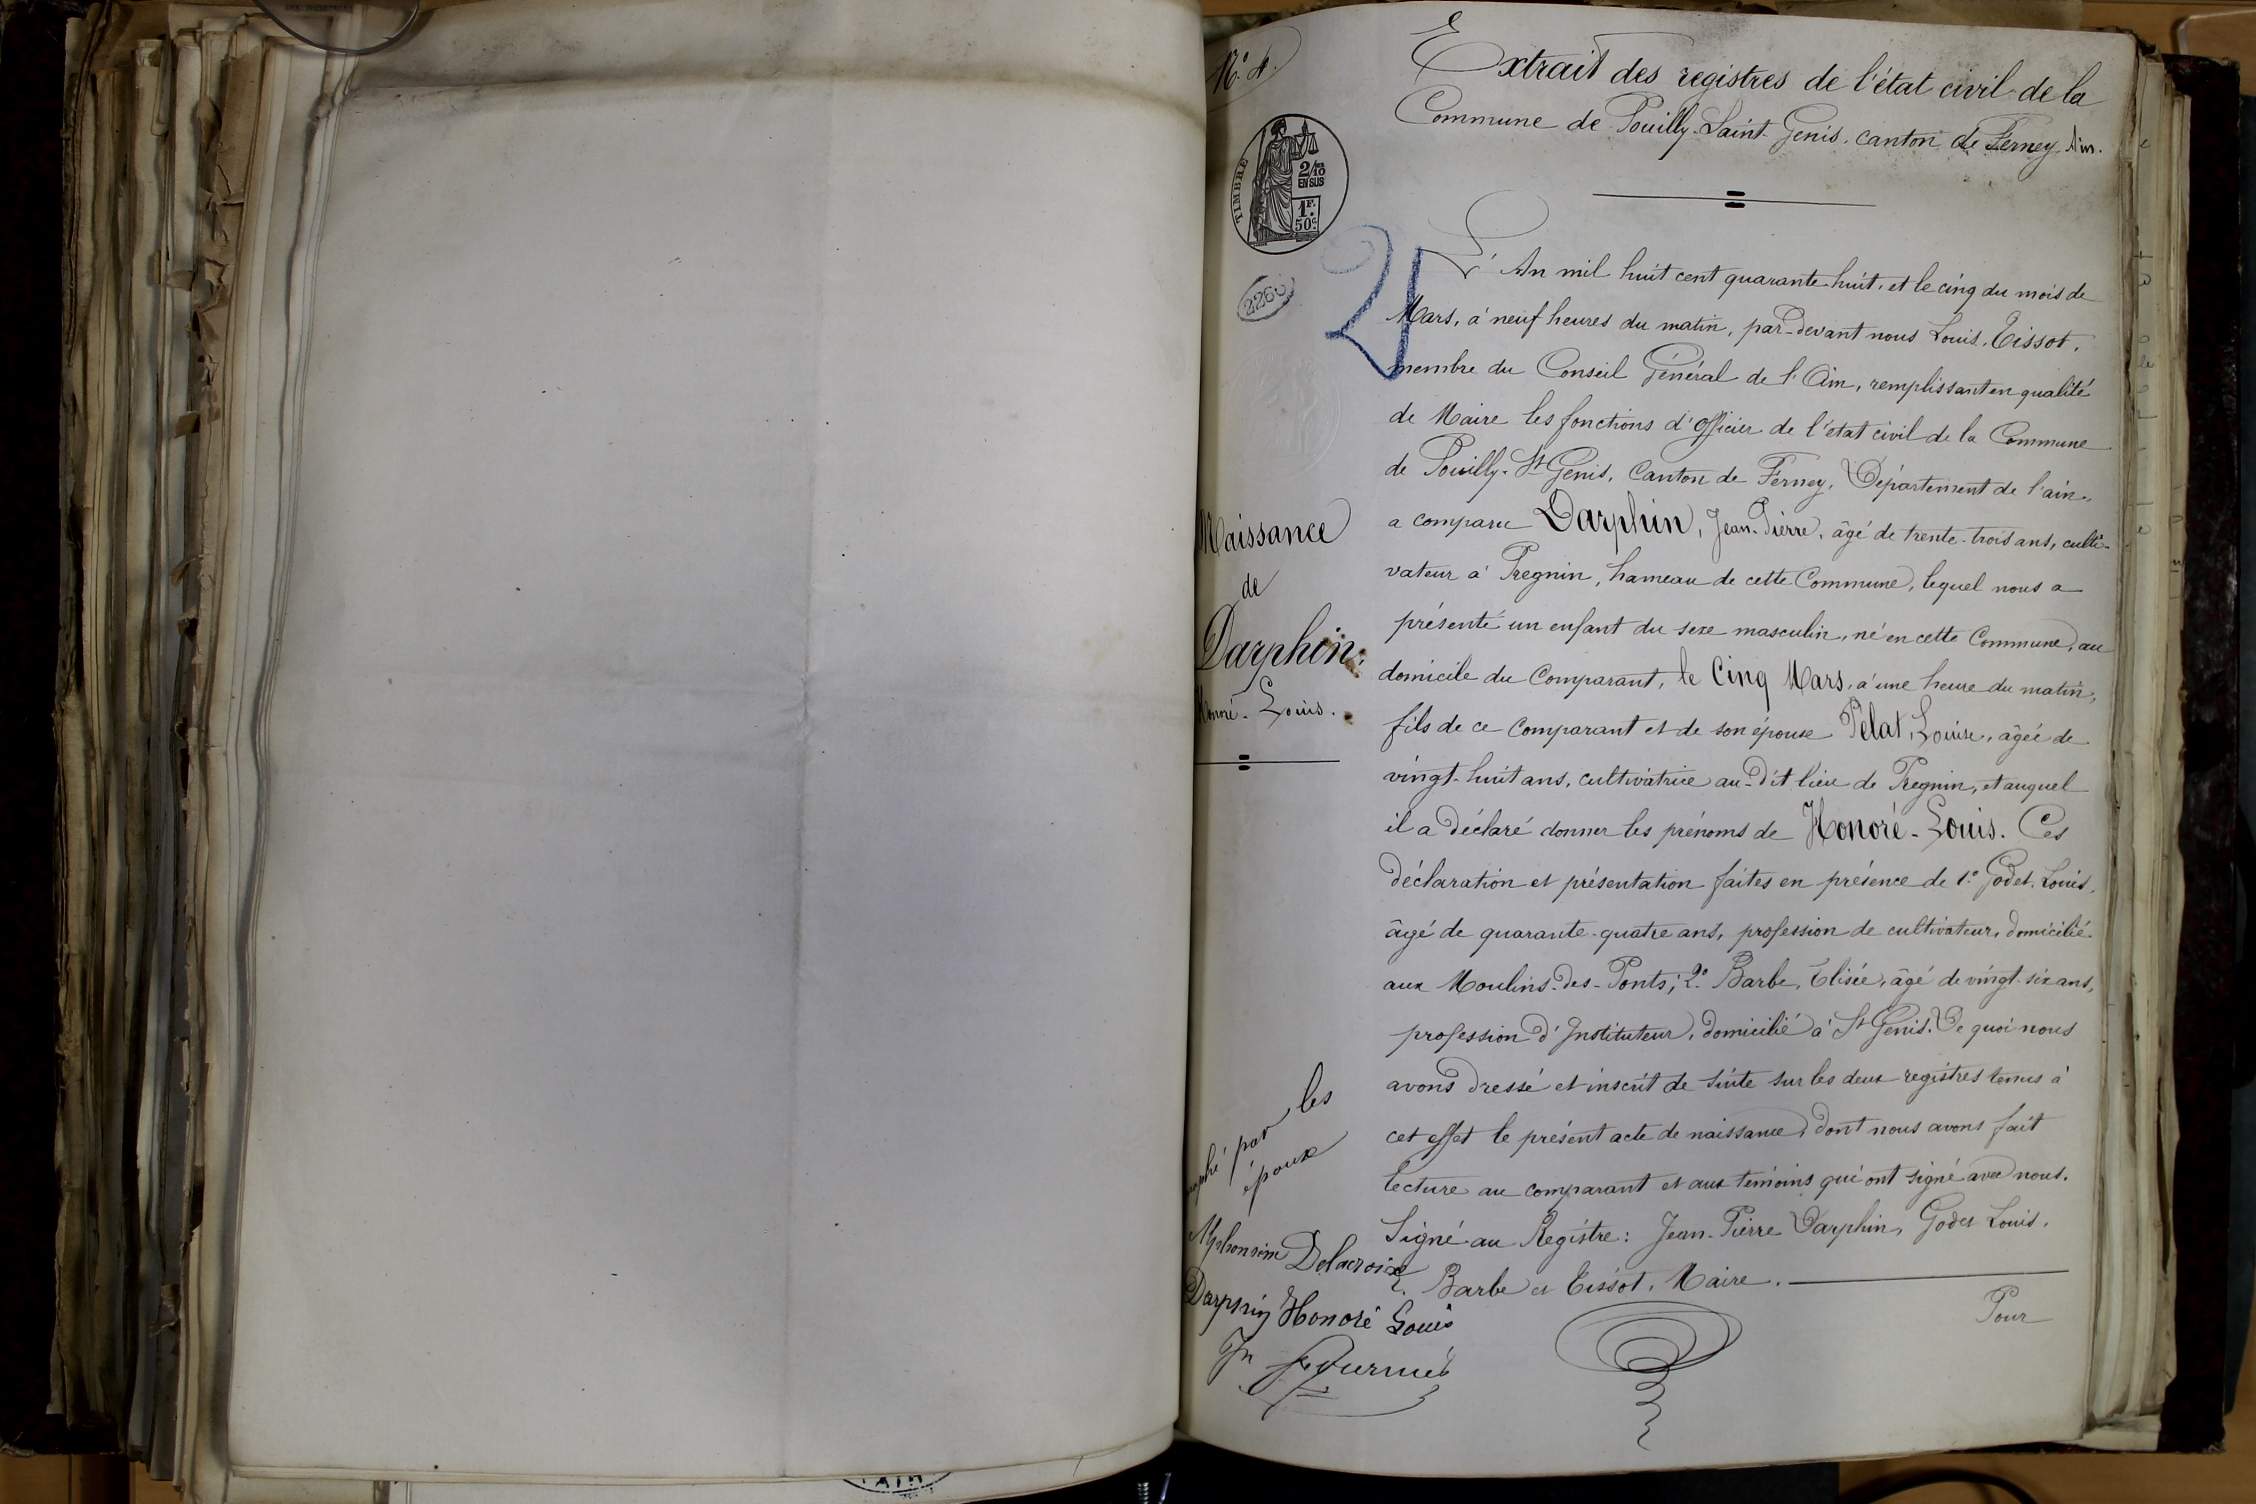 N.° 4.
Extrait des registres de l'état civil de la
Commune de Pouilly-Saint-Genis, canton de Ferney, Ain.
TIMBRE
2/10
EN SUS
1F.
50c.
L'An mil huit cent quarante-huit, et le cinq du mois de
Mars, à neuf heures du matin, par-devant nous Louis Tissot,
membre du Conseil Général de l'Ain, remplissant en qualité
de Maire les fonctions d'officier de l'état civil de la Commune
de Pouilly-St Genis, Canton de Ferney, Département de l'ain,
a comparu Darphin, Jean-Pierre, âgé de trente-trois ans, culti-
vateur à Pregnin, hameau de cette Commune, lequel nous a
présenté un enfant du sexe masculin, né en cette Commune, au
domicile du Comparant, le Cinq Mars, à une heure du matin,
fils de ce Comparant et de son épouse Pelat, Louise, âgée de
vingt-huit ans, cultivatrice au-dit lieu de Pregnin, et auquel
il a déclaré donner les prénoms de Honoré-Louis. Ces
déclaration et présentation faites en présence de 1.° Godet, Louis,
âgé de quarante-quatre ans, profession de cultivateur, domicilié
aux Moulins-des-Ponts; 2.° Barbe, Elisée, âgé de vingt-six ans,
profession d'Instituteur, domicilié à St Genis. De quoi nous
avons dressé et inscrit de suite sur les deux registres tenus à
cet effet le présent acte de naissance, dont nous avons fait
lecture au comparant et aux témoins qui ont signé avec nous.
Signé au Régistre: Jean-Pierre Darphin, Godet Louis,
Barbe et Tissot, Maire.
Pour
Naissance
de
Darphin,
Honoré-Louis.
par les
époux
Alphonsine Delacroix
Darphin Honoré Louis
AIN